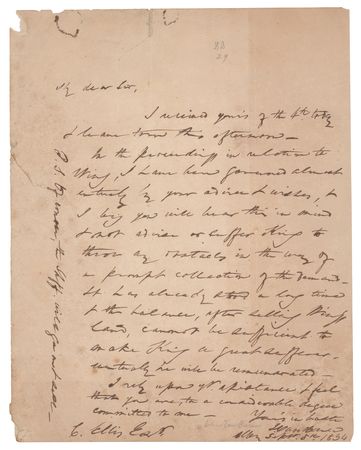 My dear Sir,
I received yours of the 4th to day
& leave town this afternoon—
In the proceedings in relation to
I have been governed almost
entirely by your advice & wishes, &
I beg you will bear this in mind
& not advise or suffer King to
throw any obstacles in the way of
a prompt collection of the demand—
It has already stood a long time
& the balance, after selling
land, cannot be sufficient to
make King a great sufferer—
certainly he will be remunerated—
I rely upon yr assistance & feel
that you are, to a considerable degree
committed to me—
Yours in haste
Sept. 5th 1834
C. Ellis Esqr
P.S.